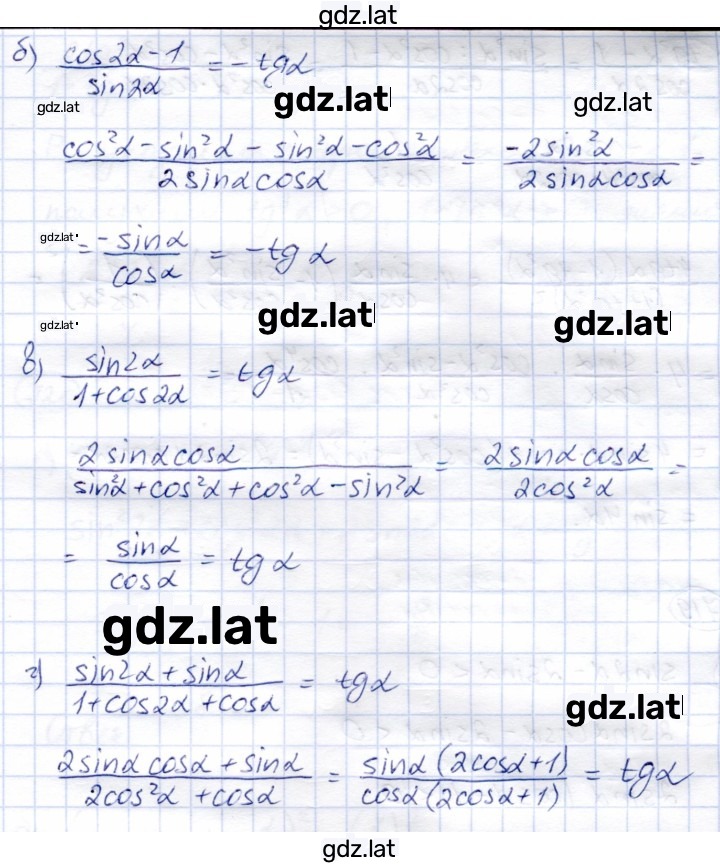 gdz.lat
б) (cos2α - 1)/(sin2α) = -tgα
gdz.lat gdz.lat gdz.lat
(cos²α - sin²α - sin²α - cos²α)/(2sinα cosα) = (-2sin²α)/(2sinα cosα) =
gdz.lat
= (-sinα)/(cosα) = -tg α
gdz.lat gdz.lat
gdz.lat
в) (sin2α)/(1+cos2α) = tgα
(2sinα cosα)/(sin²α + cos²α + cos²α - sin²α) = (2sinα cosα)/(2cos²α) =
= (sinα)/(cosα) = tg α
gdz.lat
г) (sin2α + sinα)/(1+cos2α + cosα) = tgα
gdz.lat
(2sinα cosα + sinα)/(2cos²α + cosα) = (sinα (2cosα+1))/(cosα (2cosα+1)) = tgα
gdz.lat